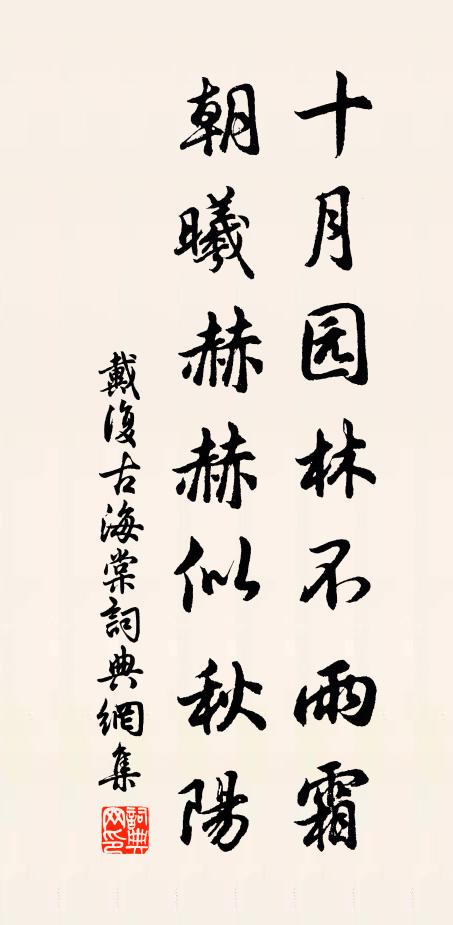 十月园林不雨霜
朝曦赫赫似秋陽
戴復古海棠詞典網集
詞典網印